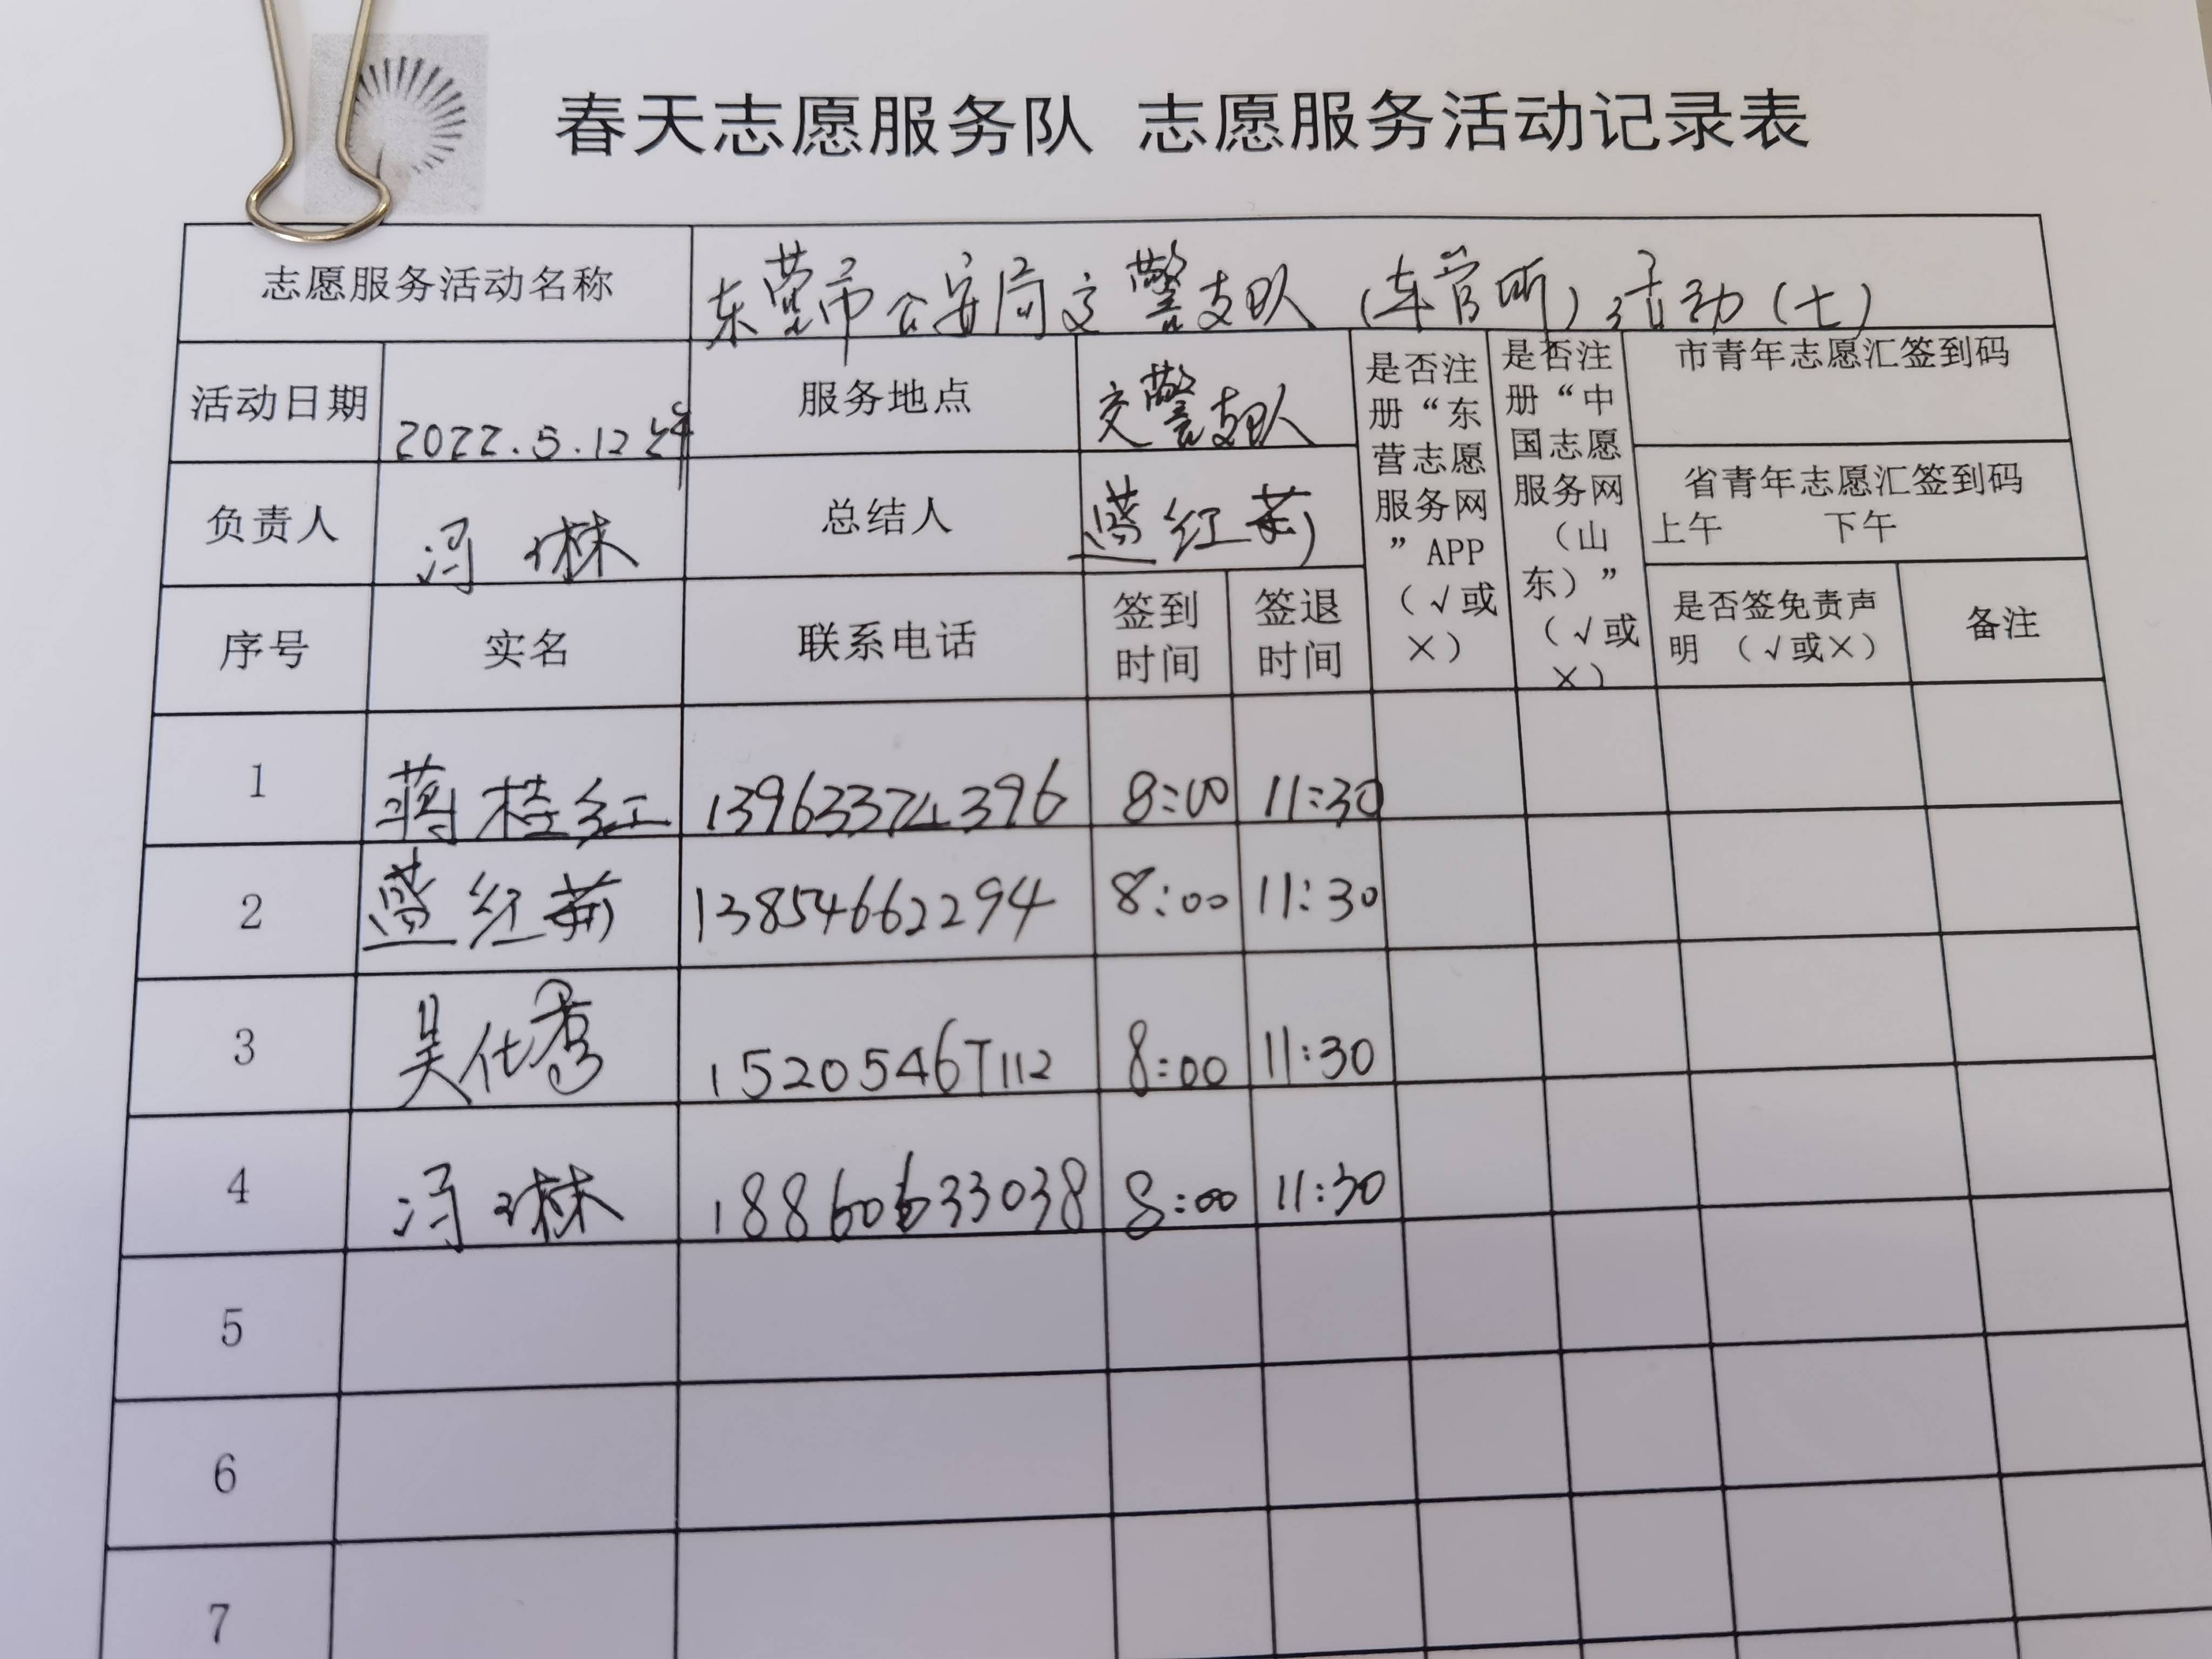 春天志愿服务队 志愿服务活动记录表
志愿服务活动名称 东营市公安局交警支队(车管所)活动(七)
活动日期 2022.5.12 服务地点 交警支队
是否注册“东营志愿服务网”APP(√或×)
是否注册“中国志愿服务网(山东)”(√或×)
市青年志愿汇签到码
负责人 冯琳 总结人 红莉
省青年志愿汇签到码
上午 下午
序号 实名 联系电话 签到时间 签退时间 是否签免责声明 (√或×) 备注
1 蒋桂红 13963374396 8:00 11:30
2 红莉 13854662294 8:00 11:30
3 吴仕秀 15205467112 8:00 11:30
4 冯琳 18860633038 8:00 11:30
5
6
7